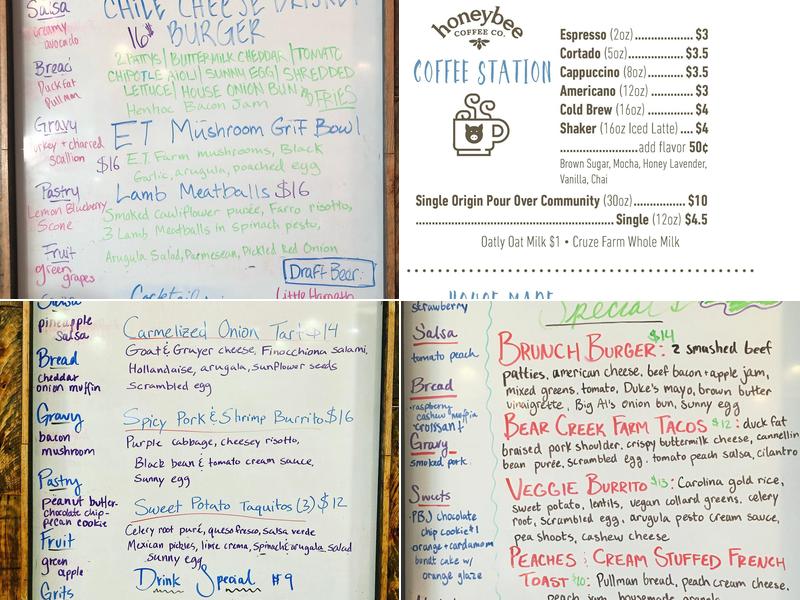 Salsa
creamy
avocado
Bread
Duck fat
Pullman
Gravy
turkey + charred
scallion
Pastry
Lemon Blueberry
Scone
Fruit
green
grapes
CHILE CHEESE BRISKET
16$ BURGER
2 PATTYS | BUTTERMILK CHEDDAR | TOMATO
CHIPOTLE AIOLI | SUNNY EGG | SHREDDED
LETTUCE | HOUSE ONION BUN & FRIES
Heritage Bacon Jam
ET Müshroom Grit Bowl
$16 E.T. Farm mushrooms, Black
Garlic, arugula, poached egg
Lamb Meatballs $16
Smoked cauliflower purée, Farro risotto,
3 Lamb Meatballs in Spinach pesto,
Arugula Salad, Parmesean, Pickled Red Onion
Draft Beer:
honeybee
COFFEE CO.
COFFEE STATION
Espresso (2oz) ............... $3
Cortado (5oz) ............... $3.5
Cappuccino (8oz) ........... $3.5
Americano (12oz) ............ $3
Cold Brew (16oz) ............ $4
Shaker (16oz Iced Latte) .... $4
..................... add flavor 50¢
Brown Sugar, Mocha, Honey Lavender,
Vanilla, Chai
Single Origin Pour Over Community (30oz) ............ $10
............................................ Single (12oz) $4.5
Oatly Oat Milk $1 • Cruze Farm Whole Milk
HOUSE MADE
pineapple
salsa
Bread
cheddar
onion muffin
Gravy
bacon
mushroom
Pastry
peanut butter-
chocolate chip-
pecan cookie
Fruit
green
apple
Grits
Carmelized Onion Tart $14
Goat & Gruyer cheese, Finocchiona salami,
Hollandaise, arugula, sunflower seeds
Scrambled egg
Spicy Pork & Shrimp Burrito $16
Purple cabbage, cheesey risotto,
Black bean & tomato cream sauce,
Sunny egg
Sweet Potato Taquitos (3) $12
Celery root puré, queso fresco, salsa verde
Mexican pickles, lime crema, spinach & arugula salad
Sunny egg
Drink Special #9
strawberry
Salsa
tomato peach
Bread
•raspberry
cashew muffin
•croissant
Gravy
smoked pork
Sweets
•PBJ chocolate
chip cookie $1
•orange + cardamom
bundt cake w/
orange glaze
Special's
BRUNCH BURGER: $14 2 smashed beef
patties, american cheese, beef bacon + apple jam,
mixed greens, tomato, Duke's mayo, brown butter
vinaigrette, Big Al's onion bun, sunny egg
BEAR CREEK FARM TACOS $12: duck fat
braised pork shoulder, crispy buttermilk cheese, cannellini
bean purée, scrambled egg, tomato peach salsa, cilantro
VEGGIE BURRITO $13: Carolina gold rice,
sweet potato, lentils, vegan collard greens, celery
root, scrambled egg, arugula pesto cream sauce,
pea shoots, cashew cheese
PEACHES & CREAM STUFFED FRENCH
TOAST $10: Pullman bread, peach cream cheese,
peach jam, housemade granola